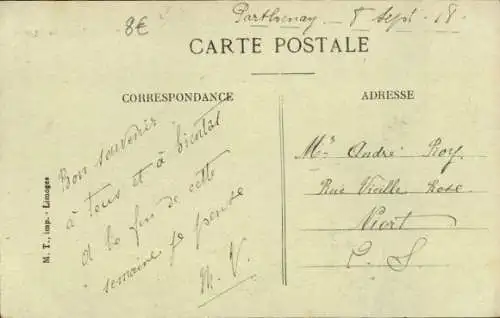 8€
Parthenay 8 Sept. 18.
CARTE POSTALE
CORRESPONDANCE
Bon souvenir
à tous et à bientôt
A la fin de cette
semaine je pense
M. V.
ADRESSE
Mr André Roy.
Rue Vieille Rose
Niort
M. T., imp. - Limoges